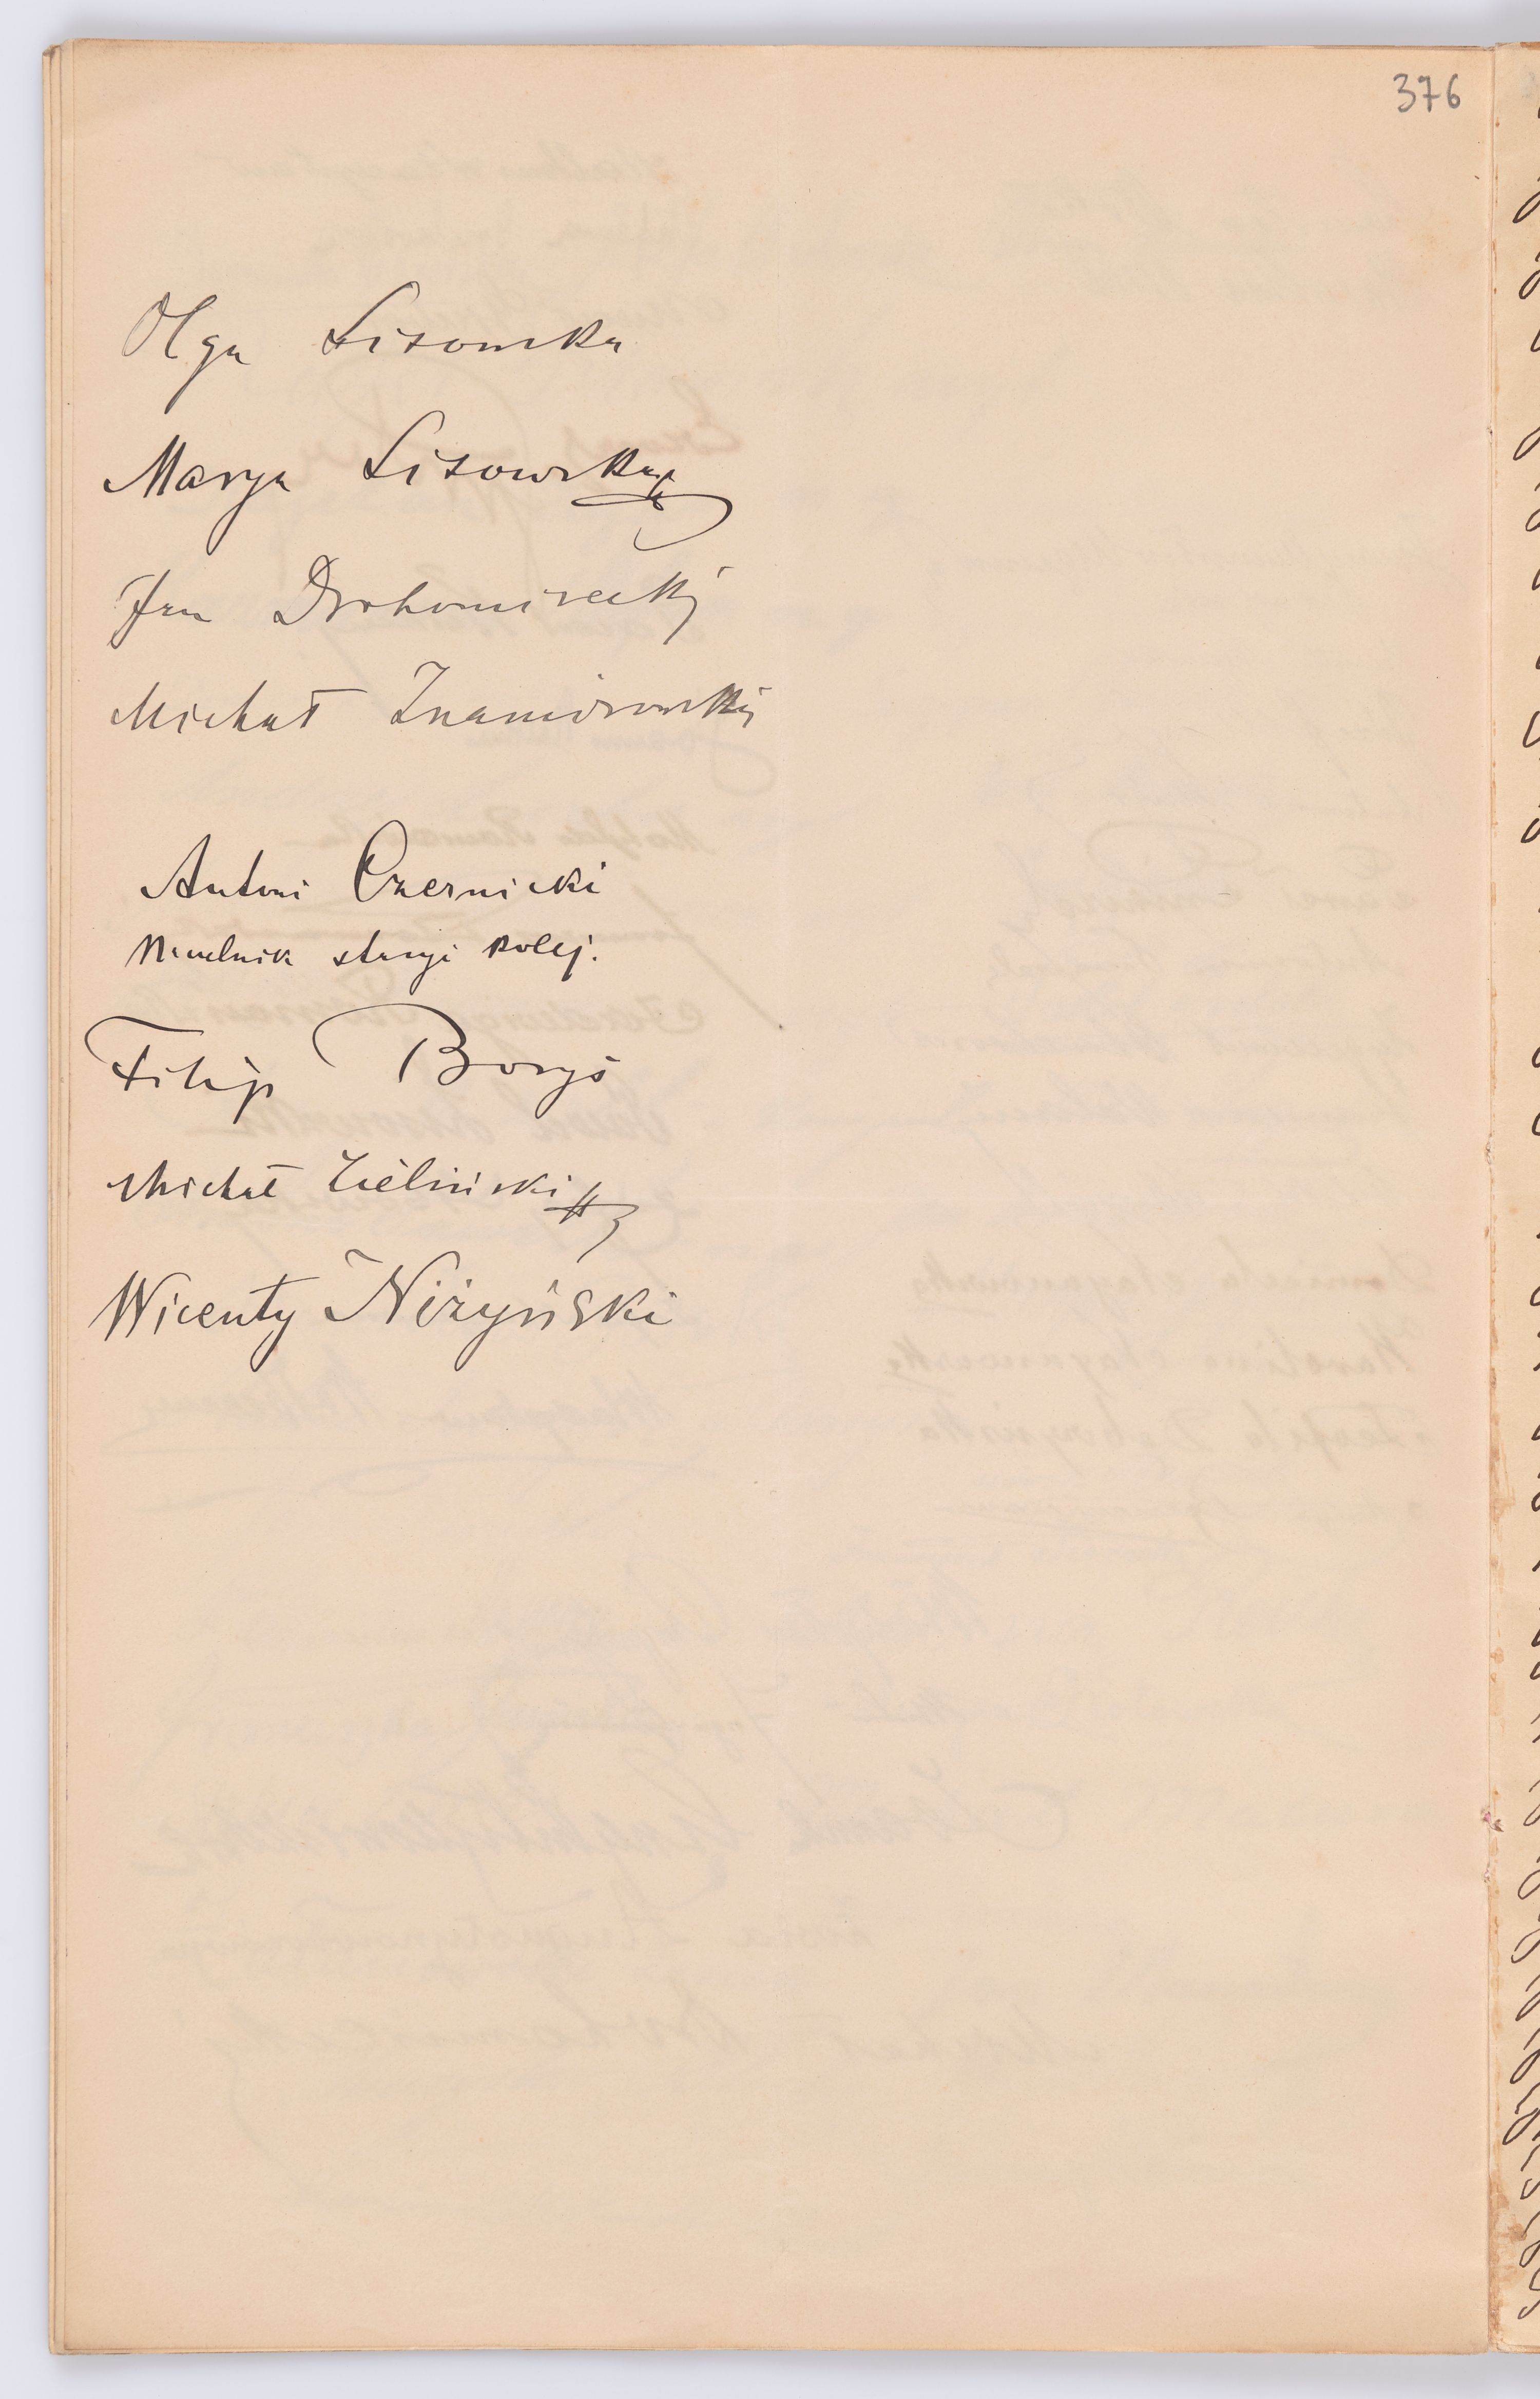 376
Olga Lisowska
Marya Lisowska
Jan Drohomirecki
Michał Znamirowski
Antoni Czernicki
Naczelnik stacyi kolej.
Filip Boryś
Michał Zieliński
Wicenty Niżyński